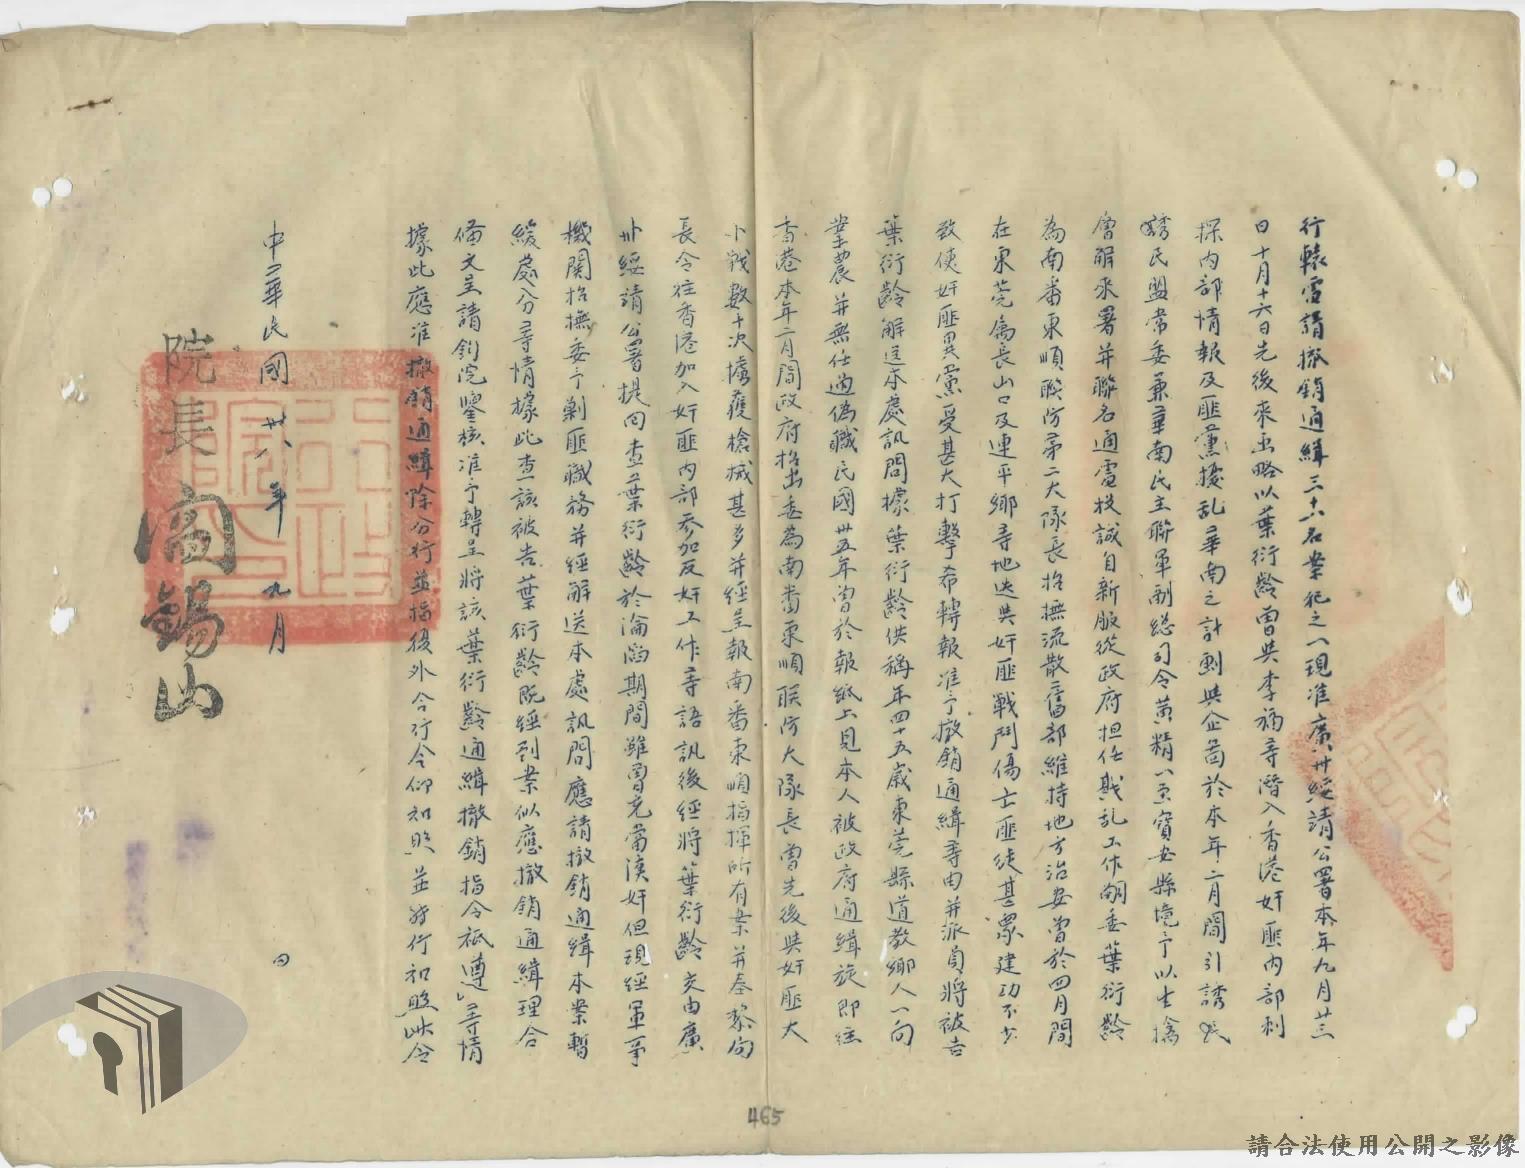 行轅電請撤銷通緝三十六名案犯之一現准廣州綏靖公署本年九月廿三
日十月十六日先後來函略以葉衍齡曾與李福等潛入香港奸匪內部刺
探內部情報及匪黨擾亂華南之計劃與企圖於本年二月間引誘民
盟常委兼華南民主聯軍副總司令黃精一至寶安縣境予以生擒
解來署并聯名通電投誠自新服從政府担任戡乱工作嗣委葉衍齡
為南番東順聯防第二大隊長招撫流散舊部維持地方治安曾於四月間
在東莞屬長山口及連平鄉等地迭與奸匪戰鬥傷亡匪徒甚眾建功不少
致使奸匪異黨受甚大打擊希轉報准予撤銷通緝等由并派員將被告
葉衍齡解送本處訊問據葉衍齡供稱年四十五歲東莞縣道教鄉人一向
業農并無任過偽職民國卅五年曾於報紙上見本人被政府通緝旋即往
香港本年二月間政府招出委為南番東順联防大隊長曾先後與奸匪大
小戰數十次擄獲槍械甚多并經呈報南番東順指揮所有案并奉黎向
長令往香港加入奸匪內部參加反奸工作等語訊後經將葉衍齡交由廣
州綏靖公署提回查葉衍齡於淪陷期間雖曾充當漢奸但現經軍事
機關招撫委予剿匪職務并經解送本處訊問應請撤銷通緝本案暫
緩處分等情據此查該被告葉衍齡既經到案似應撤銷通緝理合
備文呈請鈞院鑒核准予轉呈將該葉衍齡通緝撤銷指令祇遵」等情
據此應准撤銷通緝除分行並指復外合行令仰知照並轉行知照此令
中華民國卅八年九月 日
院長 閻錫山
465
請合法使用公開之影像